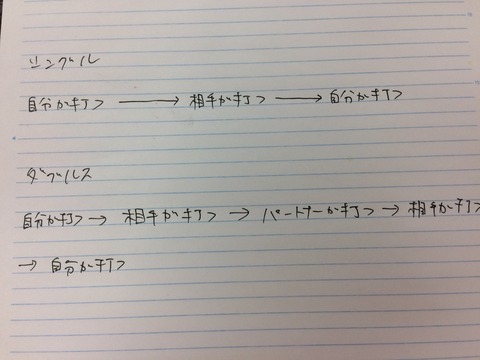 シングル
自分が打つ → 相手が打つ → 自分が打つ
ダブルス
自分が打つ → 相手が打つ → パートナーが打つ → 相手が打つ
→ 自分が打つ